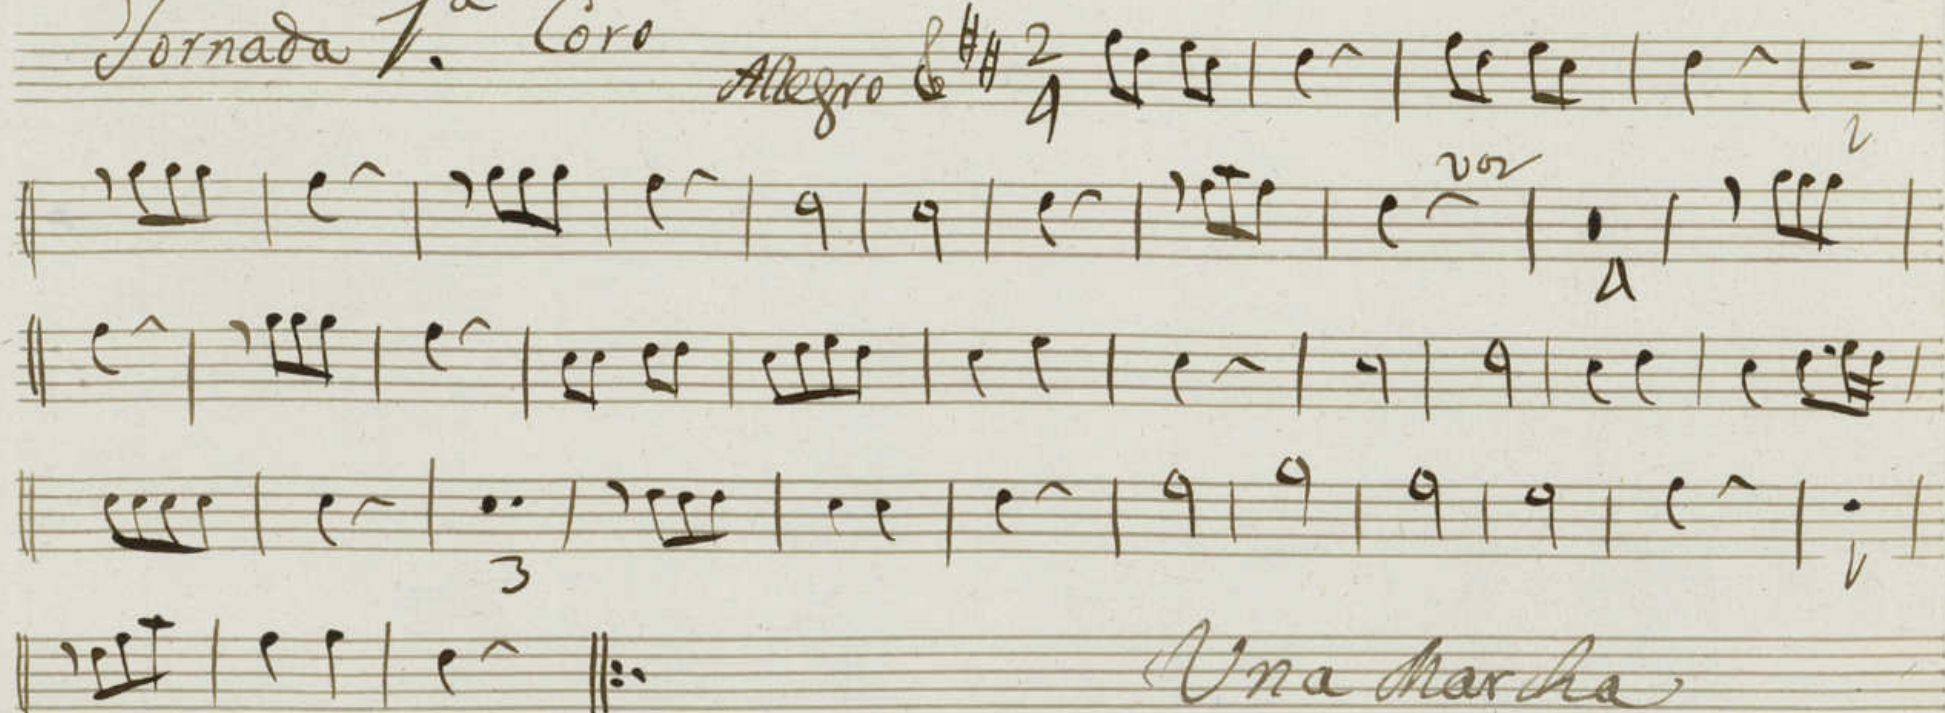 Jornada 1.ª Coro
Allegro 2 4
2
voz
4
3
2
Una Marcha